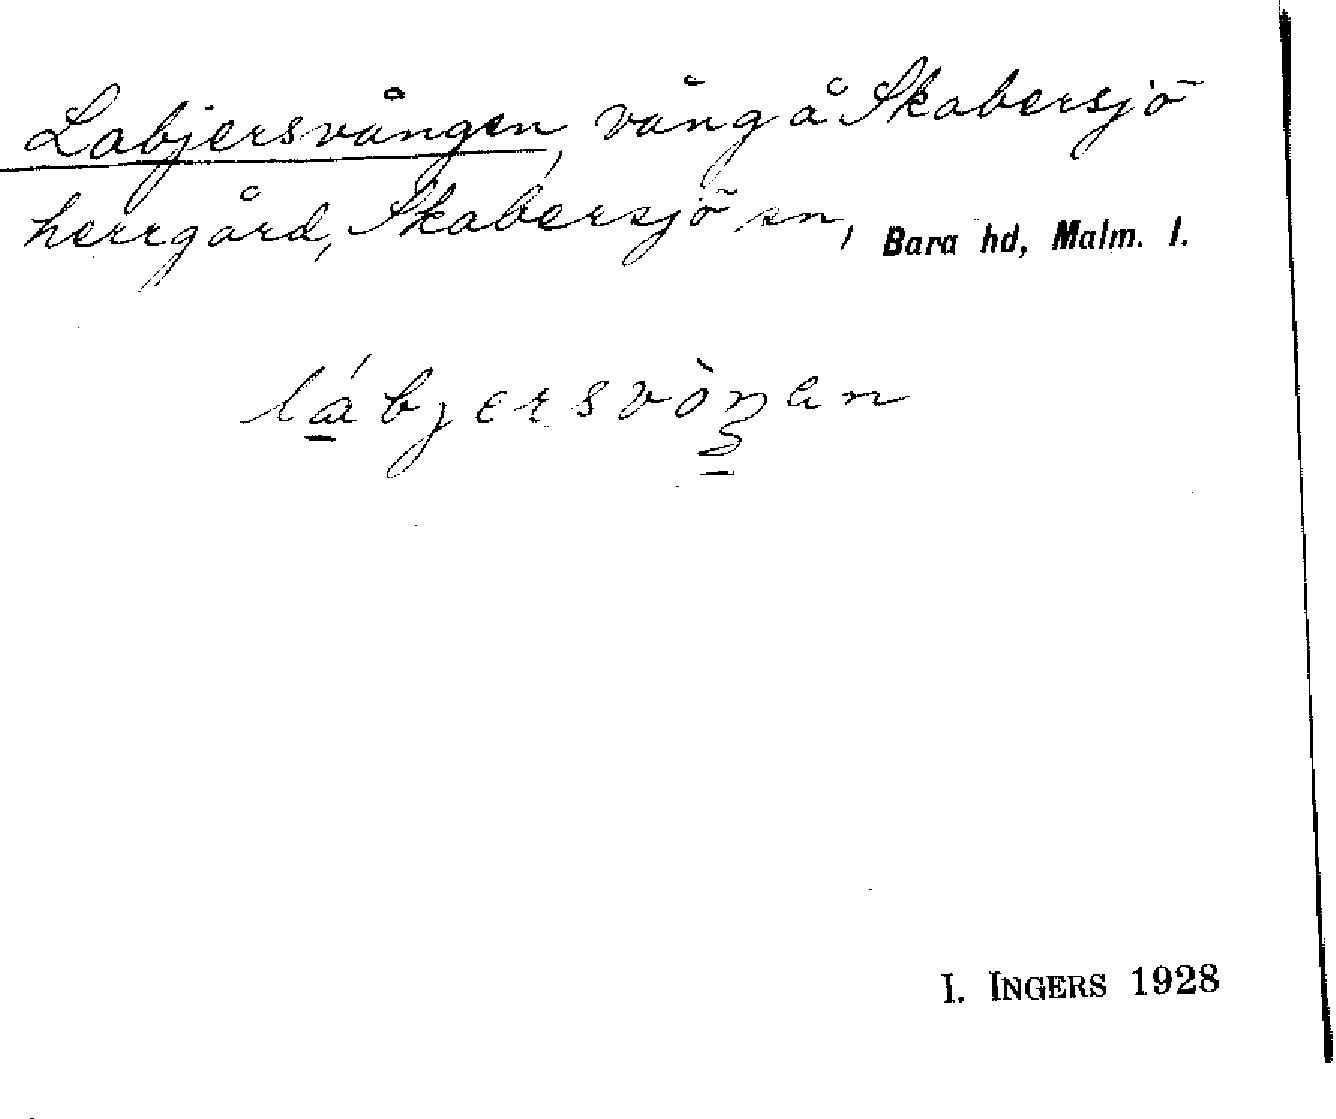 Labjersvången, vång å Skabersjö
herrgård, Skabersjö sn, Bara hd, Malm. l.
lábjersvòŋan
I. INGERS 1928